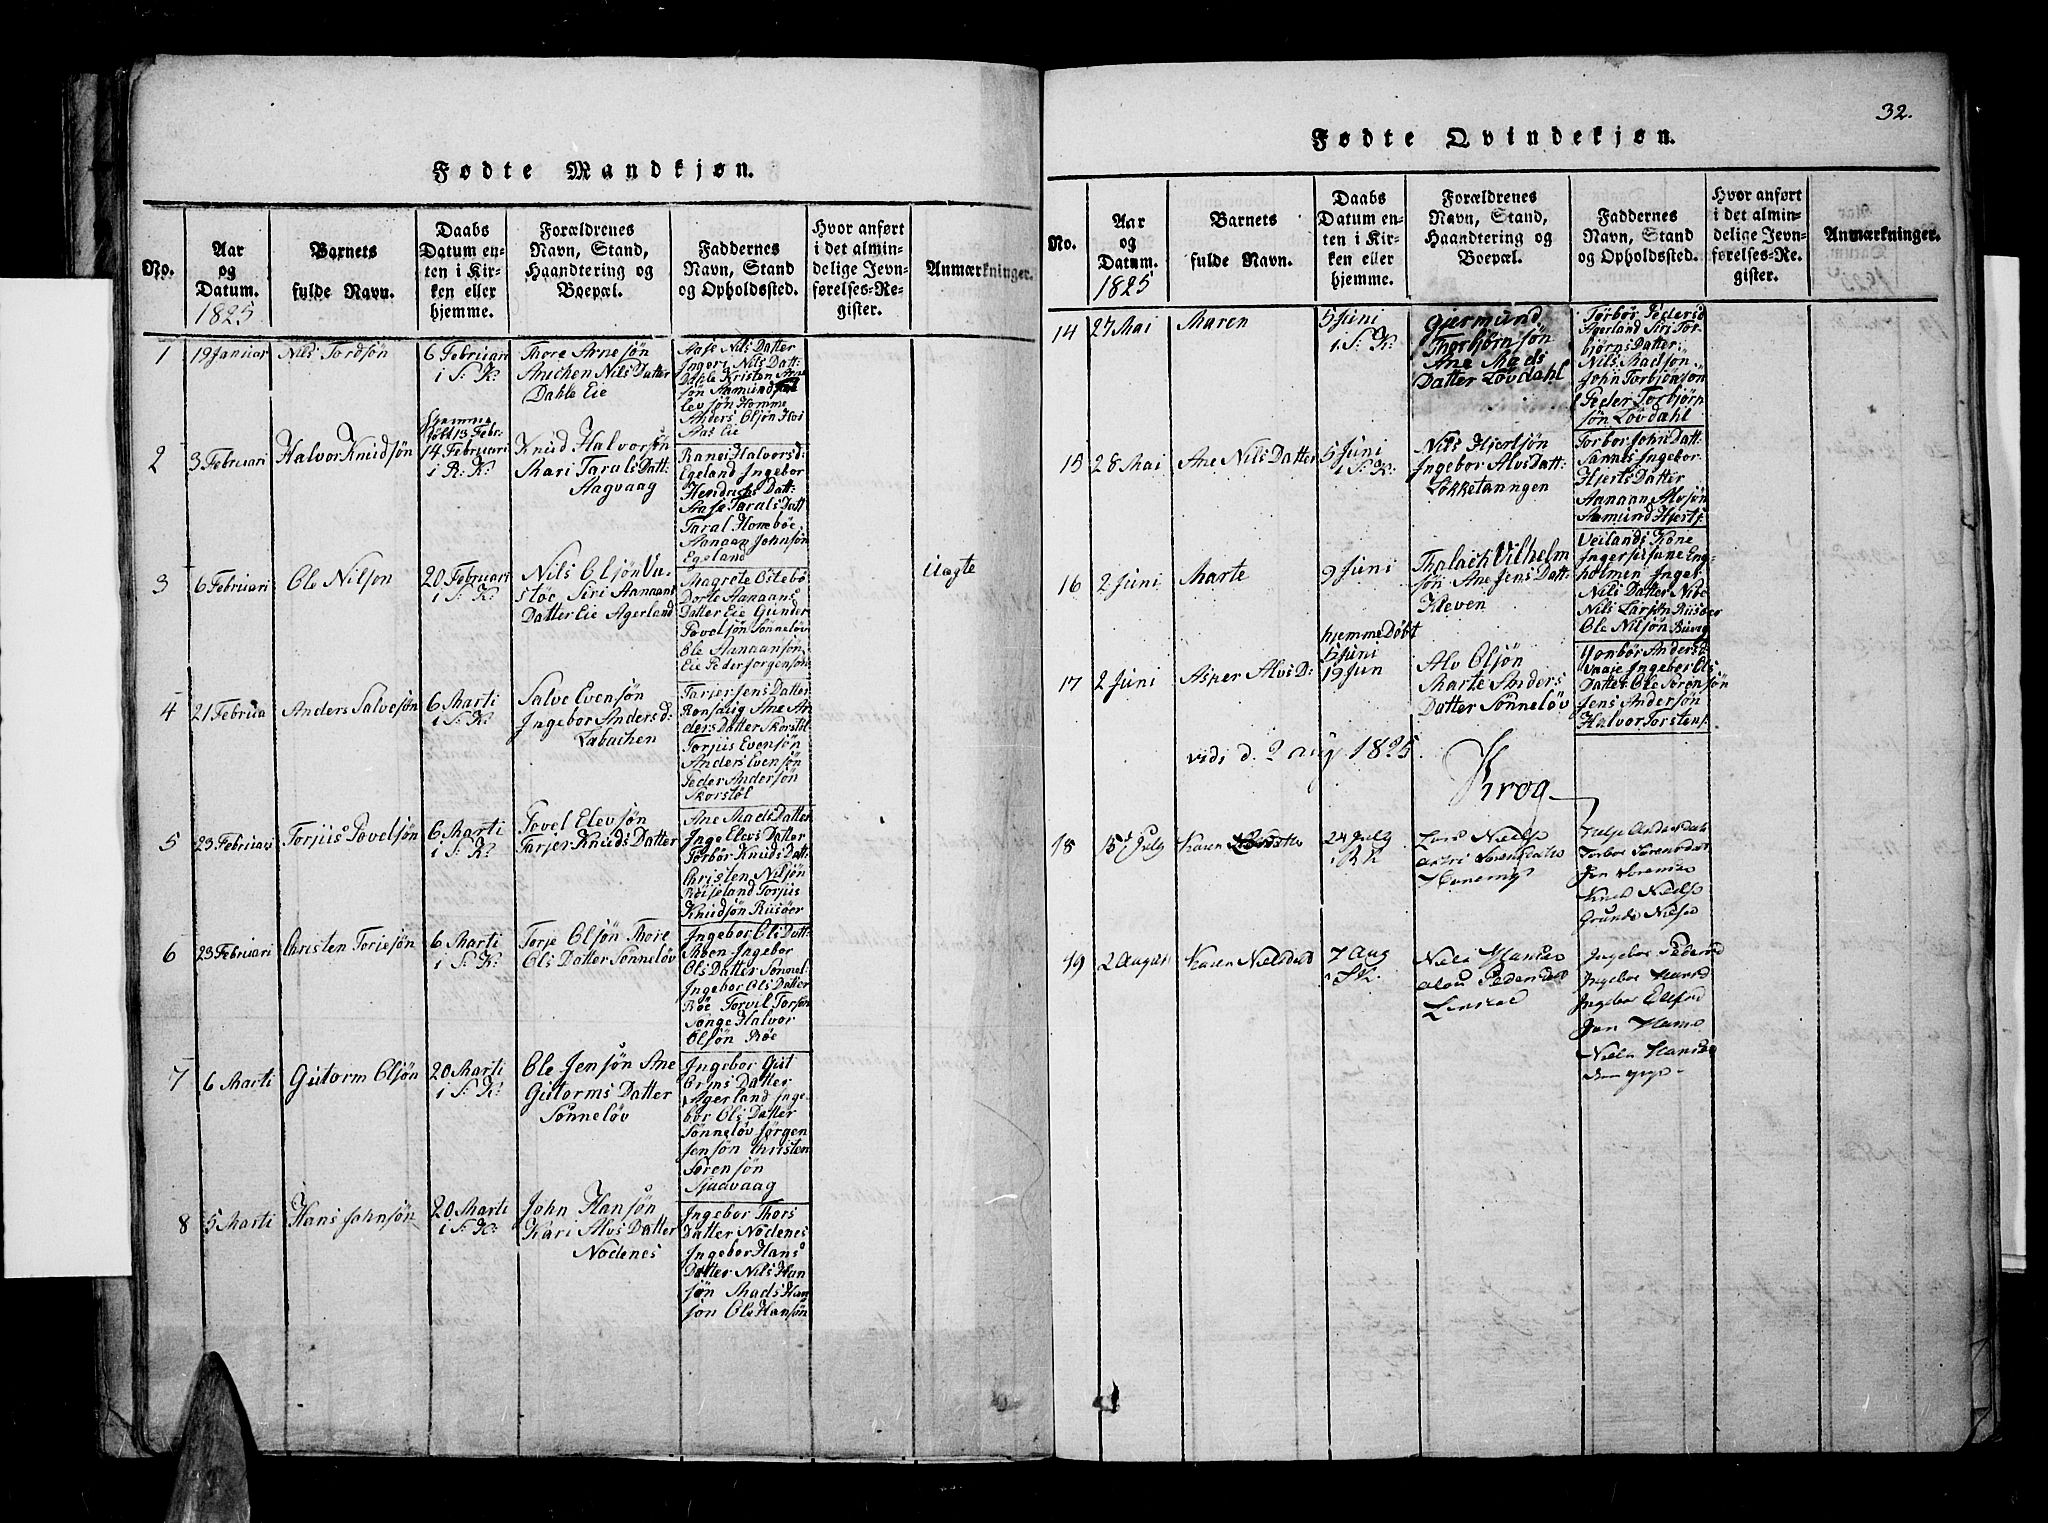 Fødte Mandkjøn.
No.
Aar
og
Datum.
1825
Barnets
fulde Navn.
Daabs
Datum en-
ten i Kir-
ken eller
hjemme.
Forældrenes
Navn, Stand,
Haandtering og
Boepæl.
Faddernes
Navn, Stand
og Opholdssted.
Hvor anført
i det almin-
delige Jevn-
førelses-Re-
gister.
Anmærkninger.
1
19 Januar
Nils Tordsøn
6 Februari
i S: K:
Thore Arnesøn
Anichen Nils Datter
Dahle Eie
Aase Nils Datter
Ingerj Nils Datt:
Dahle Kristen Arne
søn Aamund
lev søn Homme
Anders Olsøn Hoi
Aas Eie
2
3 Februari
Halvor Knudsøn
Hjemme
døbt 13 Febr:
14 Februari
i R: K:
Knud Halvorsøn
Mari Tarals Datt:
Aagvaag
Ranei Halvors d:
Egeland Ingebor
Hendrichs Datt:
Aase Tarals Datt
Taral Homboe
Aanaan Johnsøn
Egeland
3
6 Februari
Ole Nilsøn
20 Februari
i S: K:
Nils Olsøn Un-
støe Siri Aanaans
Datter Eie Agerland
Magrete Ostebø
Dorte Aanaans
Datter Eie Gunder
Povelsøn Sønneløv
Ole Aanaansøn
Eie Peder Jorgensøn
Uægte
4
21 Februa
Anders Salvesøn
6 Marti
i S: K:
Salve Evensøn
Ingebor Anders d:
Labachen
Tarjer Jens Datter
Rønsevig Ane An
ders Datter Skorstøl
Torjus Evensøn
Anders Evensøn
Peder Andersøn
Skorstøl
5
23 Februari
Torjus Povelsøn
6 Marti
i S: K:
Povel Elevsøn
Tarjer Knuds Datter
Ane Mads Datter
Inge Elevs Datter
Torbør Knuds Datt:
Christen Nilsøn
Røiseland Torjus
Knudsøn Risøer
6
23 Februari
Christen Torjesøn
6 Marti
i S: K:
Torje Olsøn Thore
Ols Datter Sønneløv
Ingebor Ols Datt:
Aaben Ingebor
Ols Datter Sønnel
Ingebor Ols Datter
Røe Torvil Torsøn
Songe Halvor
Olsøn Røe
7
6 Marti
Gutorm Olsøn
20 Marti
i S: K:
Ole Jensøn Ane
Gutorms Datter
Sønneløv
Ingebor Gut
orms Datter
Agerland Inge
bør Ols Datter
Sønneløv Jørgen
Jensøn Christen
Sørensøn
Sjudvaag
8
5 Marti
Hans Johnsøn
20 Marti
i S: K:
John Hansøn
Kari Alvs Datter
Nodenes
Ingebor Thors
Datter Nodenes
Ingebor Hans
Datter Nils Han
søn Mads Han
søn Ole Hansøn
32.
Fødte Qvindekjøn.
No.
Aar
og
Datum.
1825
Barnets
fulde Navn.
Daabs
Datum en-
ten i Kir-
ken eller
hjemme.
Forældrenes
Navn, Stand,
Haandtering og
Boepæl.
Faddernes
Navn, Stand
og Opholdssted.
Hvor anført
i det almin-
delige Jevn-
førelses-Re-
gister.
Anmærkninger.
14
27 Mai
Maren
5 Juni
i S: K:
Gjermund
Thorbjørnsøn
Ane Mads
Datter Løvdahl
Torbør Peders d
Agerland Siri Tor-
bjørns Datter:
Nils Madsøn
John Torbjønsøn
Peder Torbjørn
søn Løvdahl
15
28 Mai
Ane Nils Datter
5 Juni
i S: K:
Nils Hjertsøn
Ingebor Alvs Datt:
Løkketanngen
Torbør John Datt:
Sannes Ingebor
Hjerts Datter
Aanaan Alvsøn
Aamund Hjertsj
16
2 Juni
Marte
9 Juni
Thalach Vilhelm
søn Ane Jens Datt:
Kleven
Veilands Kone
Holmen Ingeb
Nils Datter Nibe
Nils Larsøn Risøer
Ole Nilsøn
17
2 Juni
Asper Alvs D:
hjemme Døbt
5 Juni
19 Jun
Alv Olsøn
Marte Anders
Datter Sønneløv
Gonbør Anders d:
Ingeber Ols
Datter Ole Sørensøn
Jens Andersøn
Halvor Torstens:
vidi d. 2 aug 1825
Krog
18
15d July
Karen
24 July
i R K
Lars Nielse
Sørensdatter
Anders dat
Torbor Sørensdat
Jen Sørense
Knud Nielse
Gunde Nielse
19
2 August
Karen Nielsdat
7 Aug
i S K.
Niels Hanse
Pedersdat
Ingebor Peders
Ingebor Hans
Ingebor Ellefsd
Jan Hans
Niels Hanse